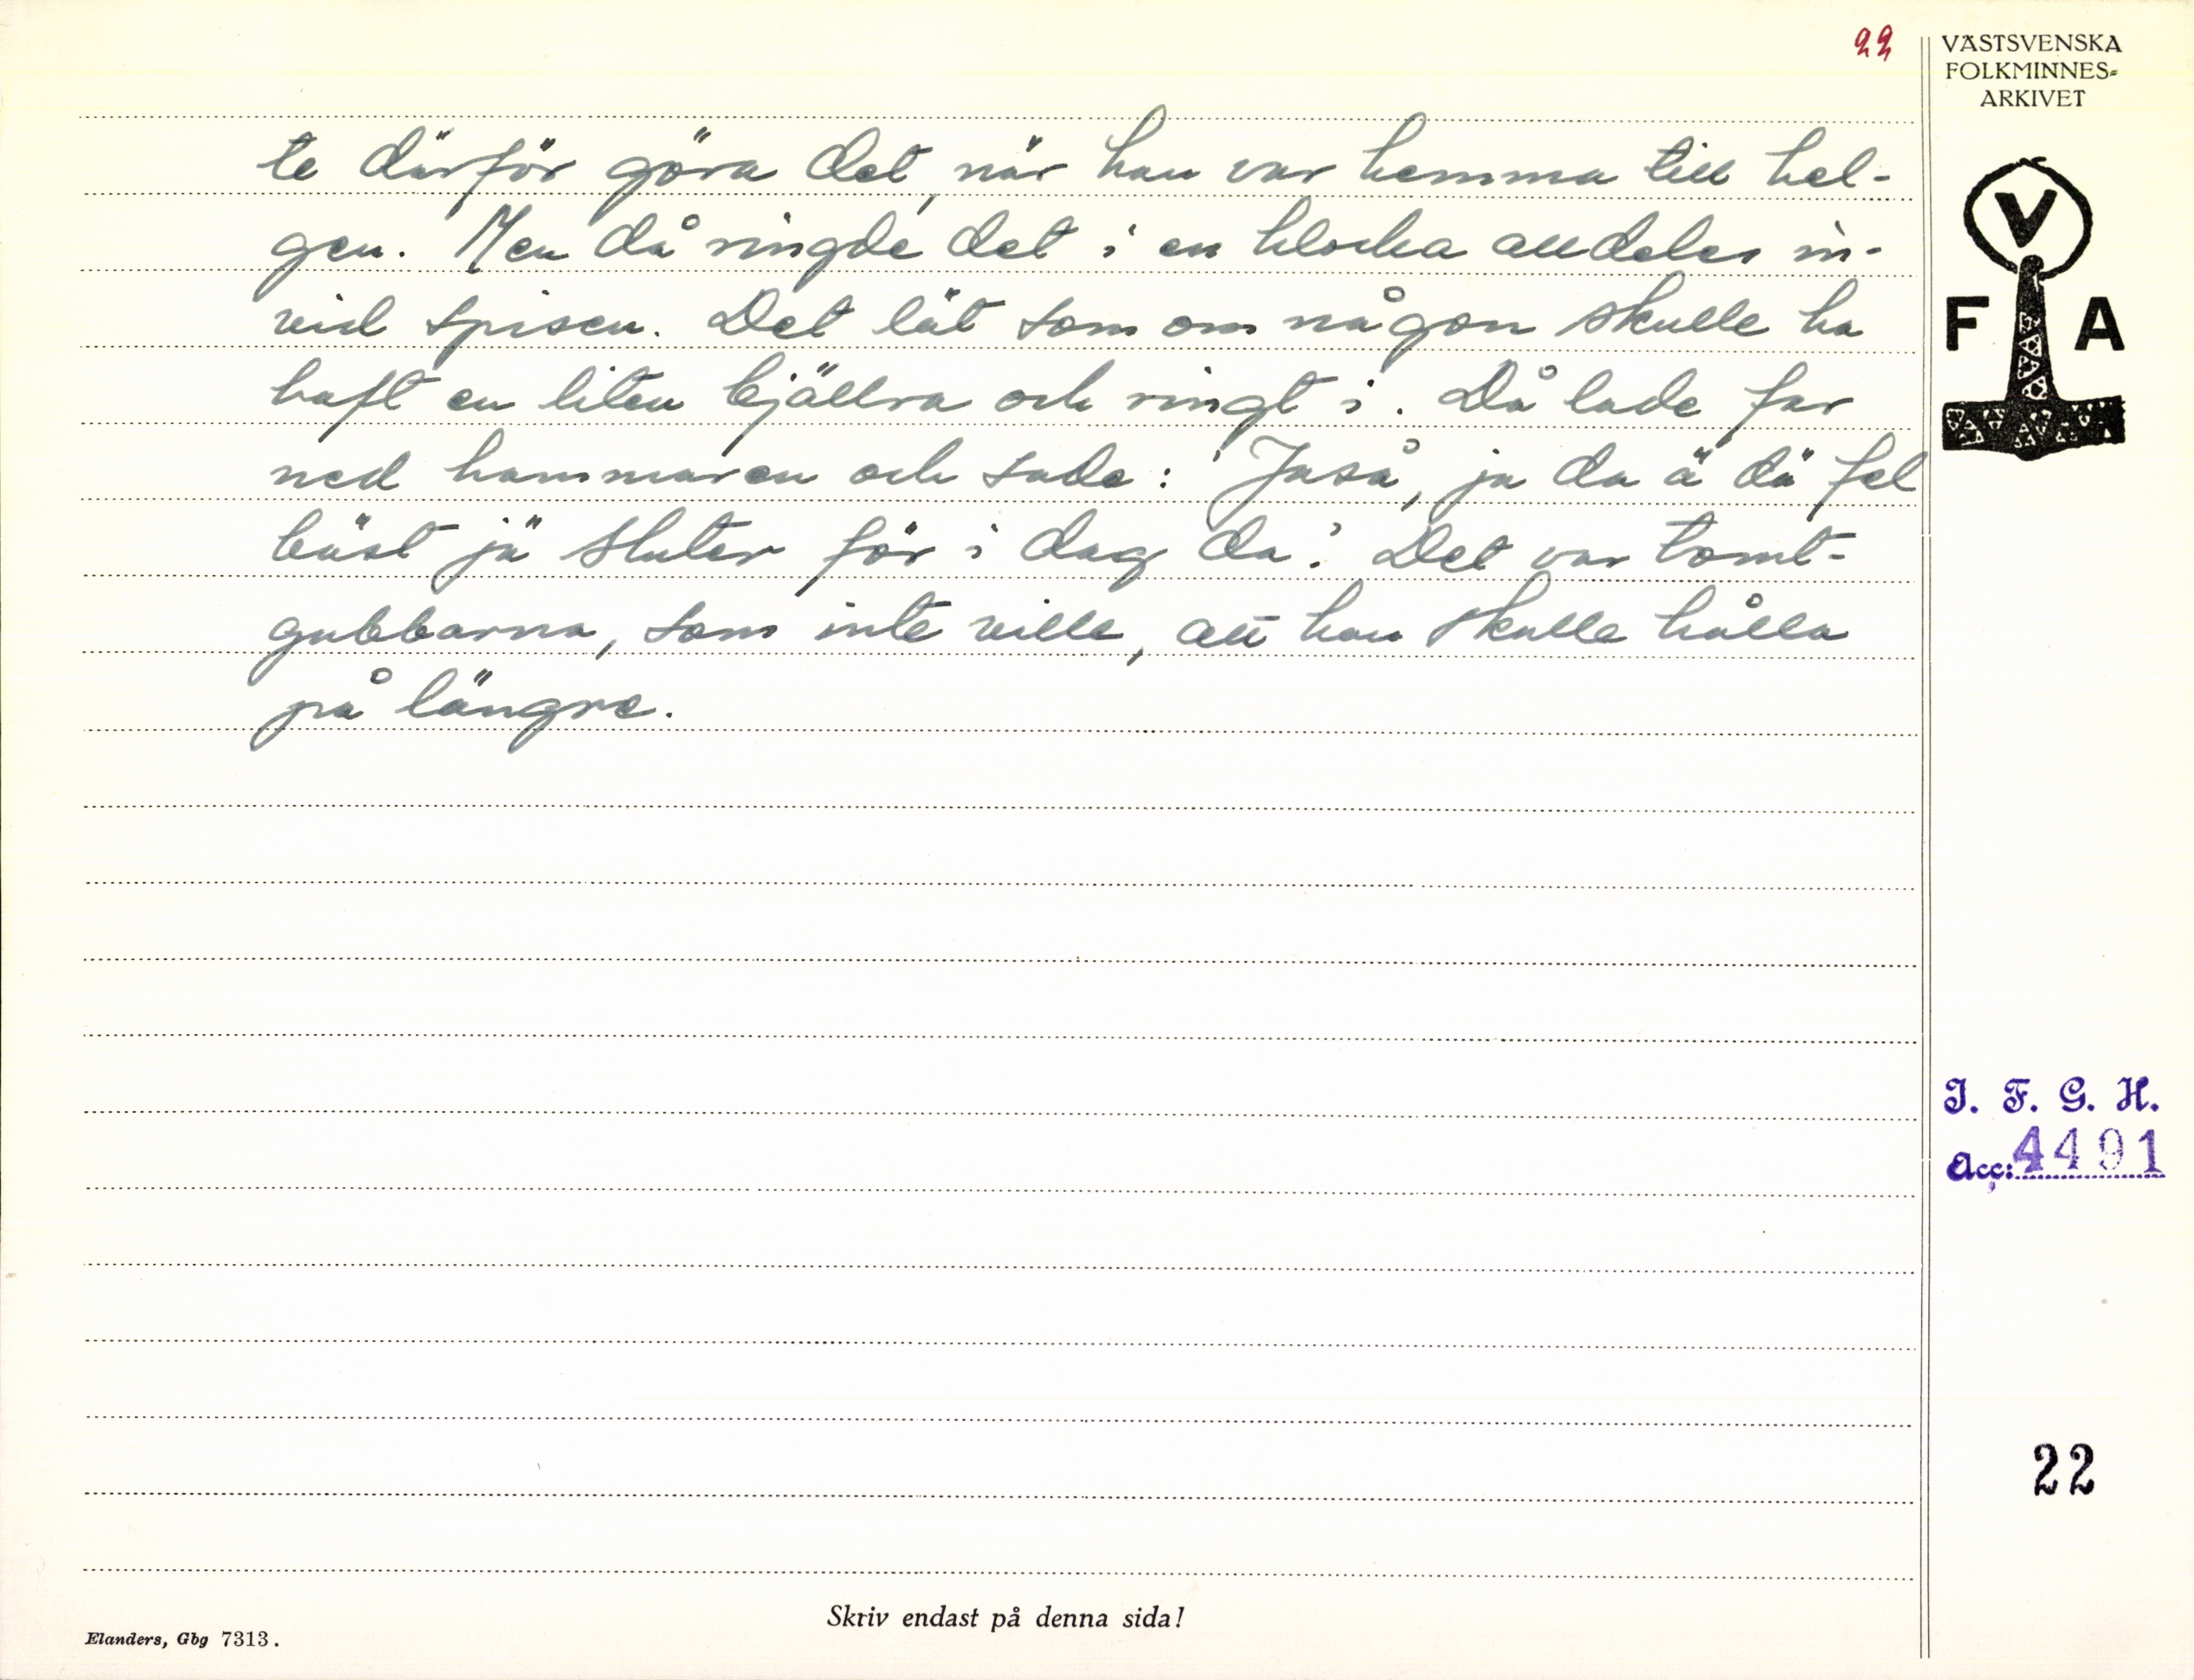 22
VÄSTSVENSKA
FOLKMINNES-
ARKIVET
te därför göra det, när han var hemma till hel-
gen. Men då ringde det i en klocka alldeles in-
vid spisen. Det lät som om någon skulle ha
haft en liten bjällra och ringt i. Då lade far
ned hammaren och sade: "Jaså, ja da ä dä fel
bäst jä sluter för i dag da". Det var tomt-
gubbarna, som inte ville, att han skulle hålla
på längre.
V
F A
I. F. G. H.
Acc: 4491
22
Skriv endast på denna sida!
Elanders, Gbg 7313.